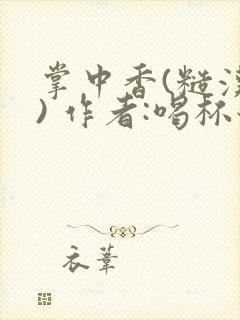 掌中香(糙汉
) 作者:喝杯
衣苇